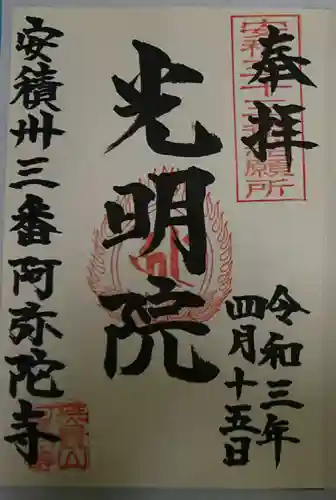 奉拝
令和三年
四月十五日
光明院
安積州三番阿弥陀寺